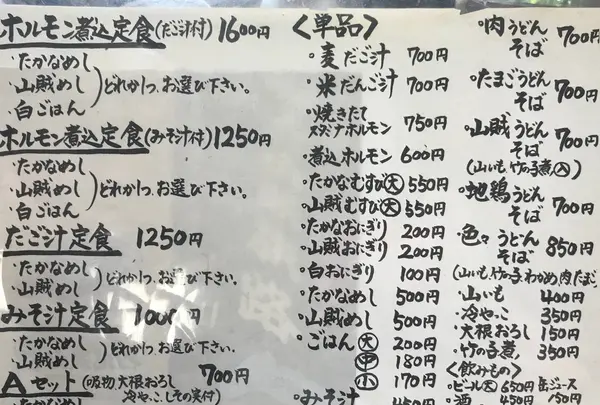 ホルモン煮込定食(だご汁付) 1600円
・たかなめし
・山賊めし
・白ごはん
どれか1つ、お選び下さい。
ホルモン煮込定食(みそ汁付) 1250円
・たかなめし
・山賊めし
・白ごはん
どれか1つ、お選び下さい。
だご汁定食 1250円
・たかなめし
・山賊めし
どれか1つ、お選び下さい。
みそ汁定食 1000円
・たかなめし
・山賊めし
どれか1つ、お選び下さい。
Aセット(吸物、大根おろし 700円
冷やっこ、しその実付)
・たかなめし
〈単品〉
・麦だご汁 700円
・米だんご汁 700円
・焼きたて
スタミナホルモン 750円
・煮込ホルモン 600円
・たかなむすび(大) 550円
・山賊むすび(大) 550円
・たかなおにぎり 200円
・山賊おにぎり 200円
・白おにぎり 100円
・たかなめし 500円
・山賊めし 500円
・ごはん(大) 200円
(中) 180円
(小) 170円
・みそ汁 450円
・肉うどん
そば 700円
・たまごうどん
そば 700円
・山賊うどん
そば 700円
(山いも、竹の子煮(入))
・地鶏うどん
そば 700円
・色々うどん
そば 850円
(山いも、竹の子、わかめ、肉、たまご)
・山いも 400円
・冷やっこ 350円
・大根おろし 150円
・竹の子煮 350円
〈飲みもの〉
・ビール(大) 650円 缶ジュース
・酒 450円 150円